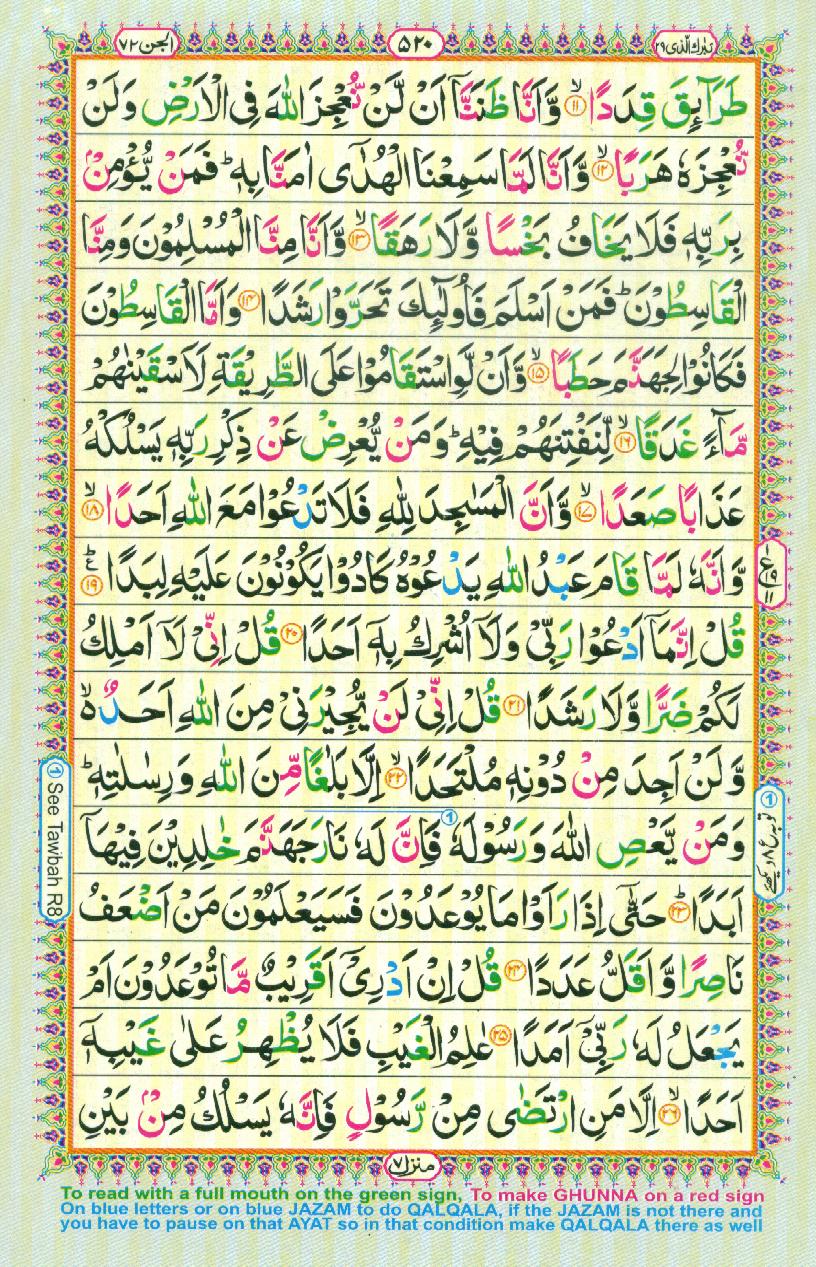 الجن ۷۲
۵۲۰
تبٰرك الذی ۲۹
طَرَآئِقَ قِدَدًا ۙ﴿۱۱﴾ وَّاَنَّا ظَنَنَّآ اَنْ لَّنْ نُّعْجِزَ اللّٰهَ فِی الْاَرْضِ وَلَنْ
نُّعْجِزَهٗ هَرَبًا ۙ﴿۱۲﴾ وَّاَنَّا لَمَّا سَمِعْنَا الْهُدٰٓی اٰمَنَّا بِهٖ ؕ فَمَنْ یُّؤْمِنْۢ
بِرَبِّهٖ فَلَا یَخَافُ بَخْسًا وَّلَا رَهَقًا ۙ﴿۱۳﴾ وَّاَنَّا مِنَّا الْمُسْلِمُوْنَ وَمِنَّا
الْقَاسِطُوْنَ ؕ فَمَنْ اَسْلَمَ فَاُولٰٓئِكَ تَحَرَّوْا رَشَدًا ﴿۱۴﴾ وَاَمَّا الْقَاسِطُوْنَ
فَكَانُوْا لِجَهَنَّمَ حَطَبًا ۙ﴿۱۵﴾ وَّاَنْ لَّوِ اسْتَقَامُوْا عَلَی الطَّرِیْقَةِ لَاَسْقَیْنٰهُمْ
مَّآءً غَدَقًا ۙ﴿۱۶﴾ لِّنَفْتِنَهُمْ فِیْهِ ؕ وَمَنْ یُّعْرِضْ عَنْ ذِكْرِ رَبِّهٖ یَسْلُكْهُ
عَذَابًا صَعَدًا ۙ﴿۱۷﴾ وَّاَنَّ الْمَسٰجِدَ لِلّٰهِ فَلَا تَدْعُوْا مَعَ اللّٰهِ اَحَدًا ۙ﴿۱۸﴾
وَّاَنَّهٗ لَمَّا قَامَ عَبْدُ اللّٰهِ یَدْعُوْهُ كَادُوْا یَكُوْنُوْنَ عَلَیْهِ لِبَدًا ؕ﴿۱۹﴾
قُلْ اِنَّمَآ اَدْعُوْا رَبِّیْ وَلَآ اُشْرِكُ بِهٖٓ اَحَدًا ﴿۲۰﴾ قُلْ اِنِّیْ لَآ اَمْلِكُ
لَكُمْ ضَرًّا وَّلَا رَشَدًا ﴿۲۱﴾ قُلْ اِنِّیْ لَنْ یُّجِیْرَنِیْ مِنَ اللّٰهِ اَحَدٌ ۙ۬
وَّلَنْ اَجِدَ مِنْ دُوْنِهٖ مُلْتَحَدًا ۙ﴿۲۲﴾ اِلَّا بَلٰغًا مِّنَ اللّٰهِ وَرِسٰلٰتِهٖ ؕ
وَمَنْ یَّعْصِ اللّٰهَ وَرَسُوْلَهٗ ① فَاِنَّ لَهٗ نَارَ جَهَنَّمَ خٰلِدِیْنَ فِیْهَآ
اَبَدًا ؕ﴿۲۳﴾ حَتّٰٓی اِذَا رَاَوْا مَا یُوْعَدُوْنَ فَسَیَعْلَمُوْنَ مَنْ اَضْعَفُ
نَاصِرًا وَّاَقَلُّ عَدَدًا ﴿۲۴﴾ قُلْ اِنْ اَدْرِیْٓ اَقَرِیْبٌ مَّا تُوْعَدُوْنَ اَمْ
یَجْعَلُ لَهٗ رَبِّیْٓ اَمَدًا ﴿۲۵﴾ عٰلِمُ الْغَیْبِ فَلَا یُظْهِرُ عَلٰی غَیْبِهٖٓ
اَحَدًا ۙ﴿۲۶﴾ اِلَّا مَنِ ارْتَضٰی مِنْ رَّسُوْلٍ فَاِنَّهٗ یَسْلُكُ مِنْۢ بَیْنِ
① See Tawbah R8
منزل ۷
To read with a full mouth on the green sign, To make GHUNNA on a red sign
On blue letters or on blue JAZAM to do QALQALA, if the JAZAM is not there and
you have to pause on that AYAT so in that condition make QALQALA there as well